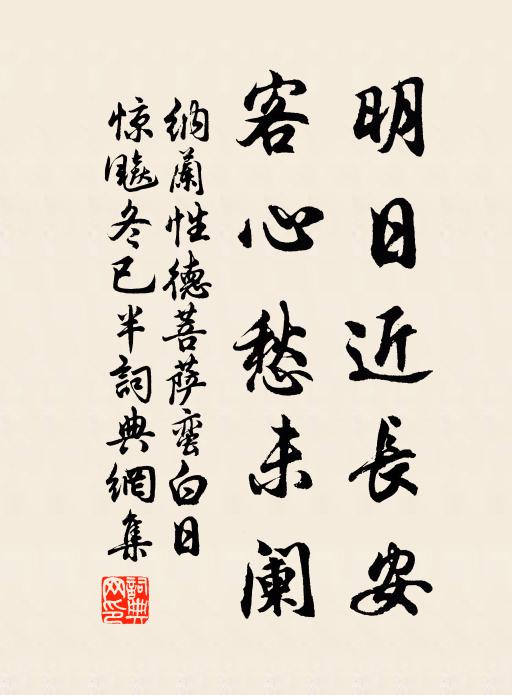 明日近長安
客心愁未阑
納蘭性德菩萨蛮白日
惊飚冬已半詞典網集
詞典
网印